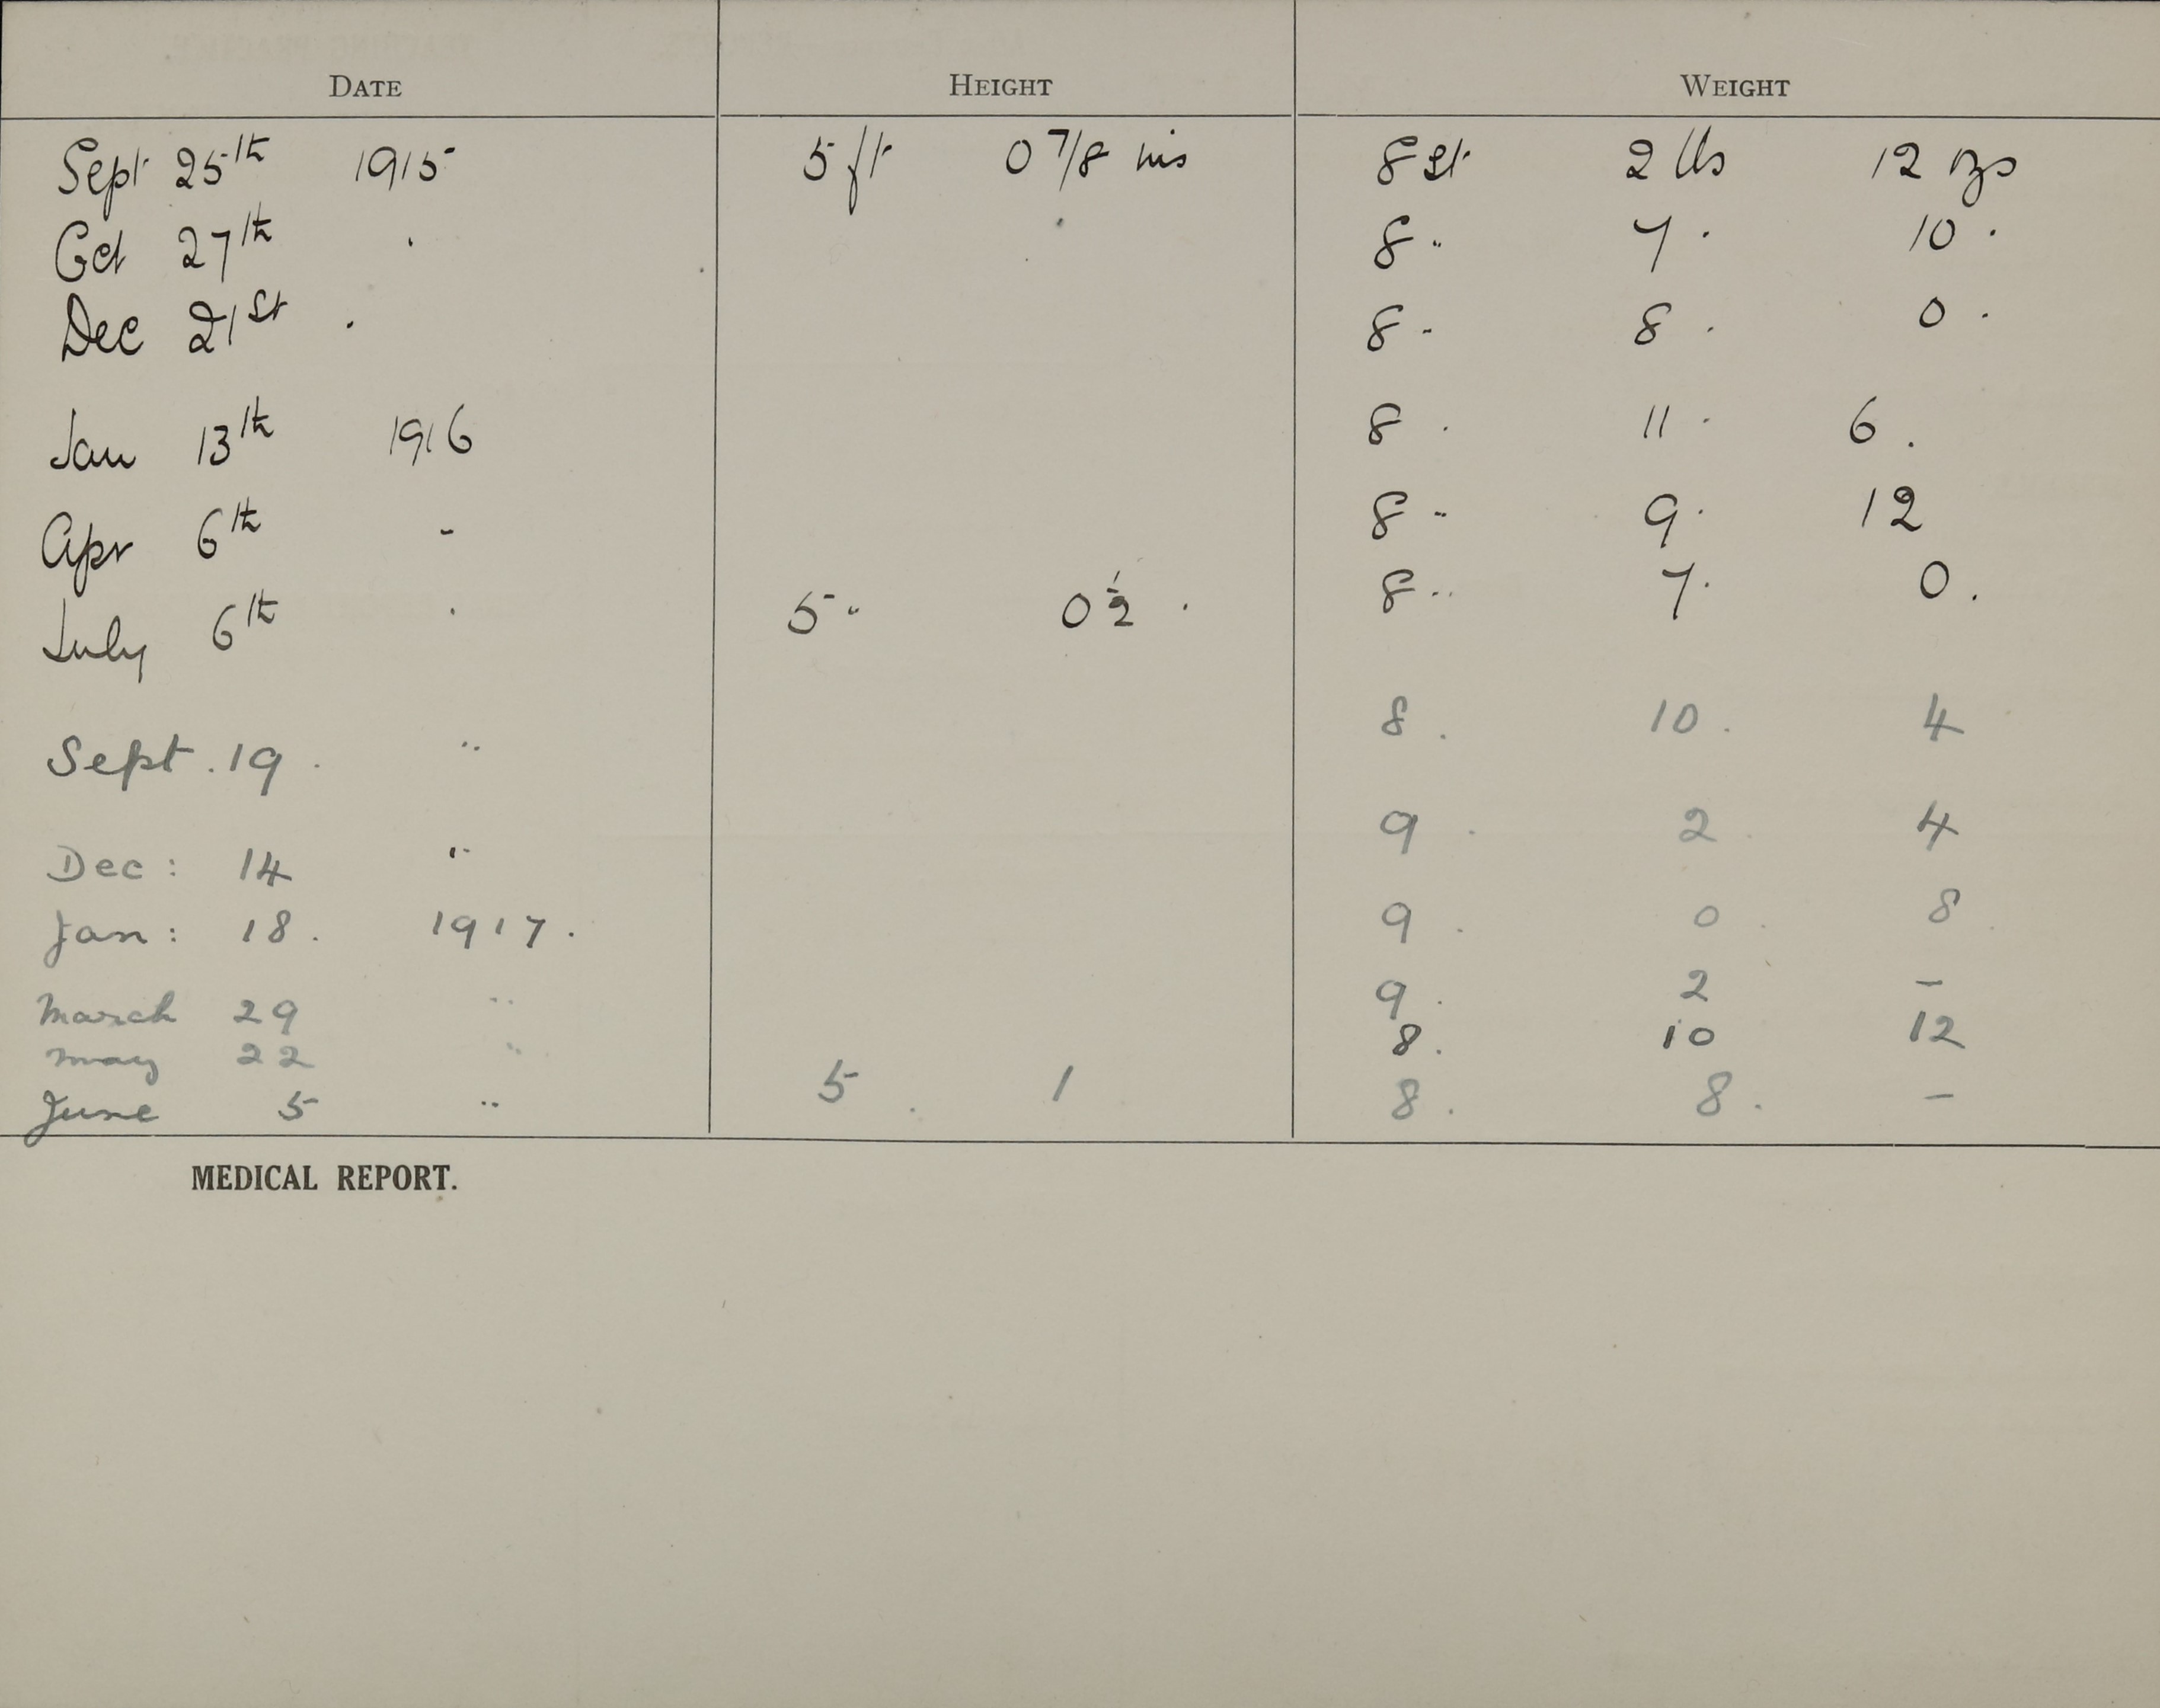 DATE HEIGHT WEIGHT
Sept 25th 1915 5 ft 0 7/8 ins 8 St 2 lbs 12 ozs
Oct 27th " 8 " 7 " 10 "
Dec 21st " 8 " 8 " 0 "
Jan 13th 1916 8 " 11 " 6 "
Apr 6th " 8 " 9 " 12
July 6th " 5 " 0 1/2 " 8 " 7 " 0 "
Sept. 19. " 8. 10. 4
Dec: 14 " 9. 2. 4
Jan: 18. 1917. 9. 0. 8.
March 29 " 9. 2 –
May 22 " 8. 10 12
June 5 " 5. 1 8. 8. –
MEDICAL REPORT.